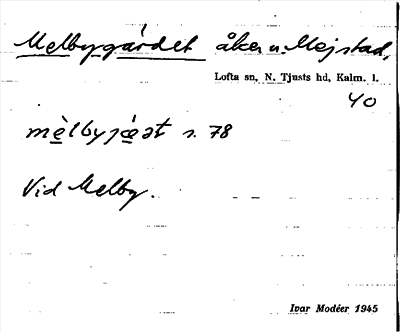 Melbygärdet åker u. Mejstad,
Lofta sn, N. Tjusts hd, Kalm. l.
40
s. 78
Vid Melby.
Ivar Modéer 1945